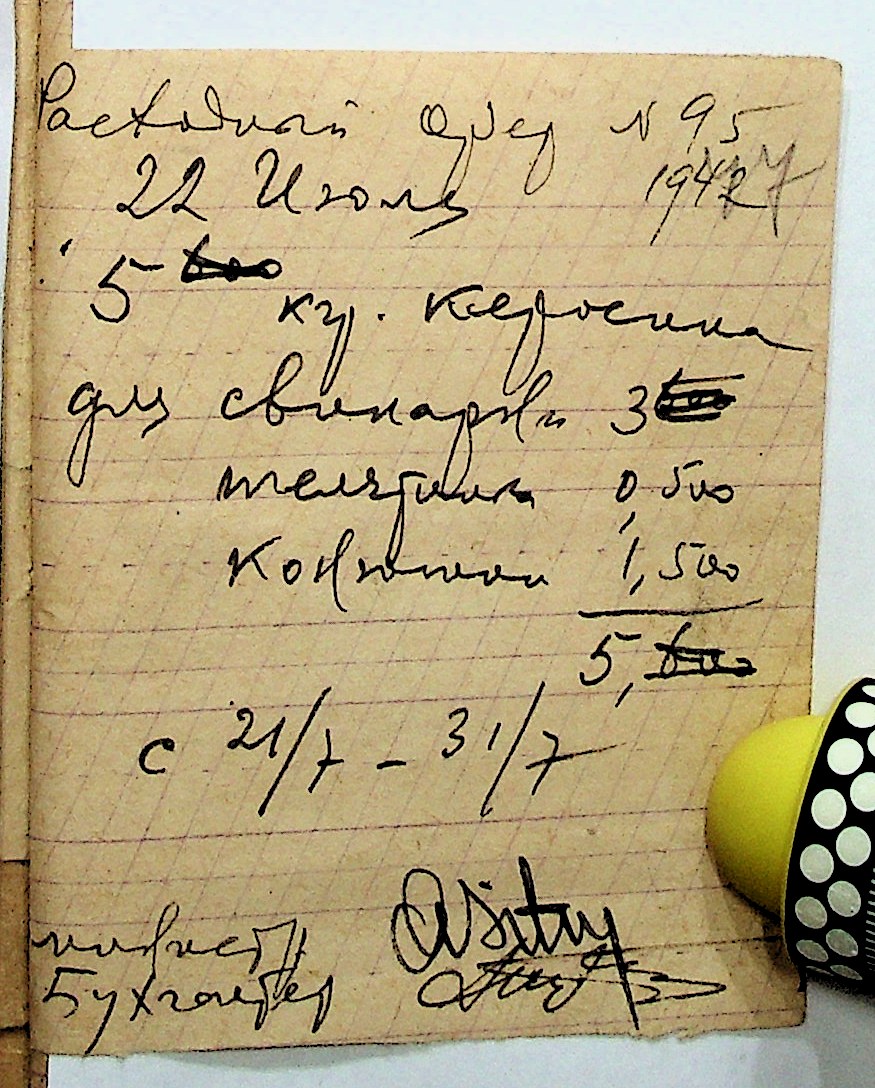 Расходный Ордер N 95
22 Июля 1947
5 кгр. керосина
для свинарки 3
телятник 0,500
Конюшни 1,500
5,
с 21/7 - 31/7
Бухгалтер